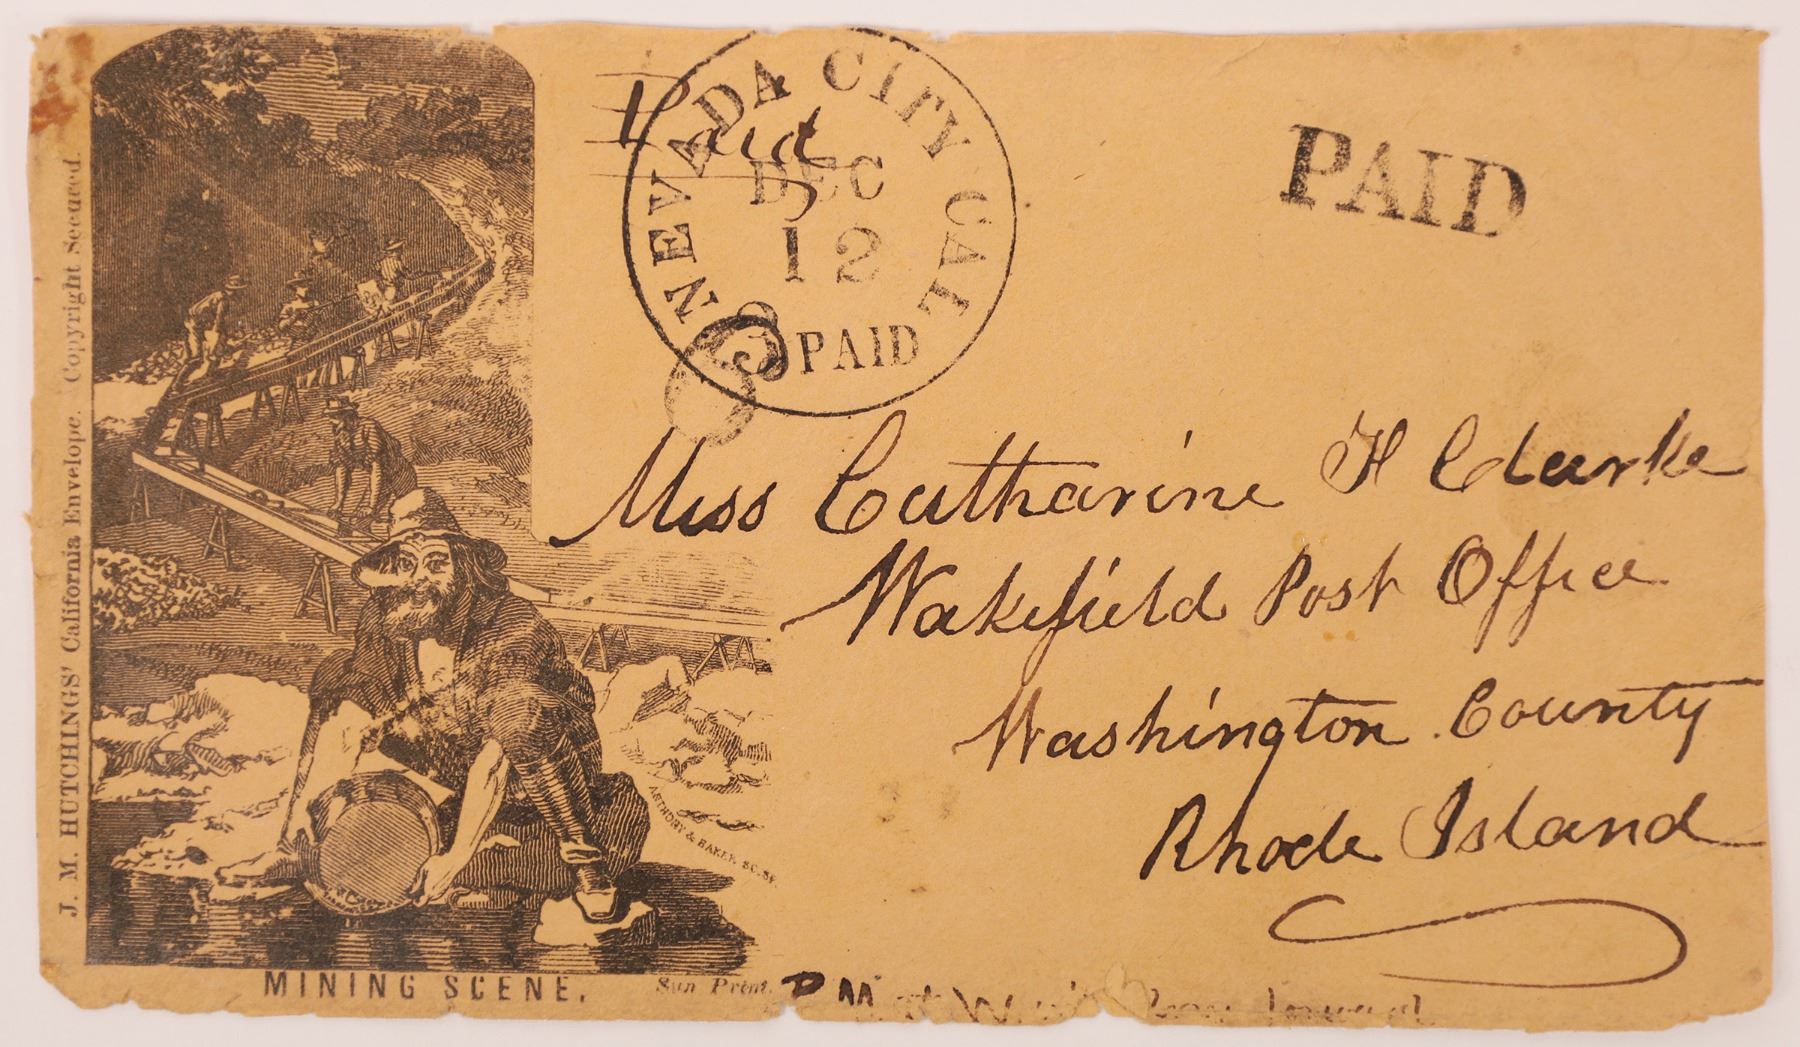 J. M. HUTCHINGS' California Envelope. Copyright Secured.
Paid
NEVADA CITY CAL
DEC
12
PAID
PAID
Miss Catharine H Clarke
Wakefield Post Office
Washington County
Rhode Island
ANTHONY & BAKER SC. SF.
MINING SCENE.
Sun Print.
P M at